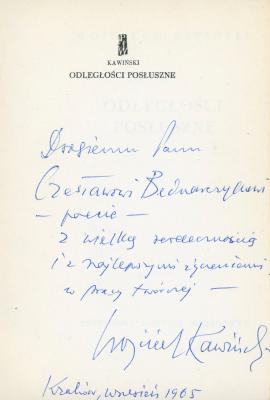 KAWIŃSKI
ODLEGŁOŚCI POSŁUSZNE
ODLEGŁOŚCI
POSŁUSZNE
Drogiemu Panu
Czesławowi Bednarczykowi
— poecie —
z wielką serdecznością
i z najlepszymi życzeniami
w pracy twórczej —
Wojciech Kawiński
Kraków, wrzesień 1965